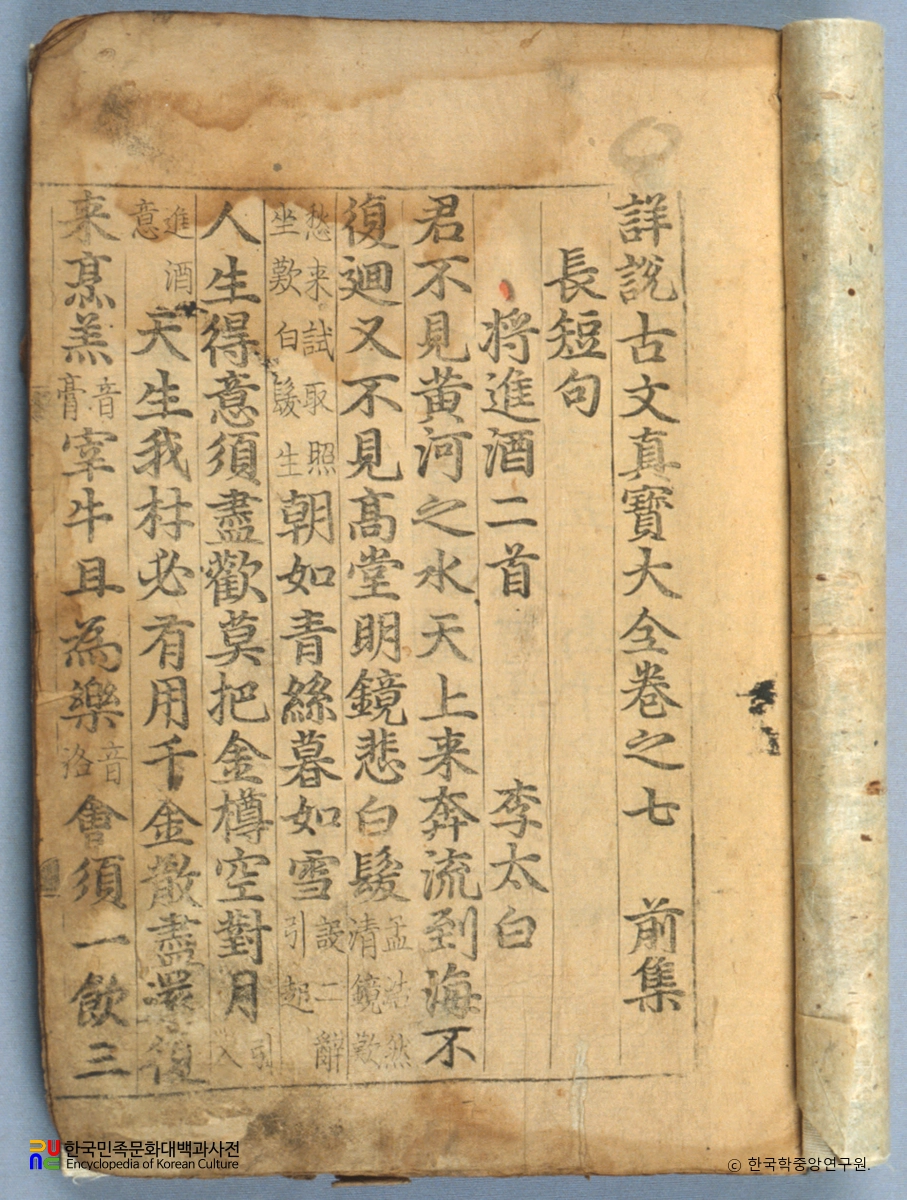 詳說古文真寶大全卷之七 前集
長短句
將進酒二首 李太白
君不見黃河之水天上来奔流到海不
復迴又不見高堂明鏡悲白髮孟浩然清鏡歎
愁来試取照坐歎白髮生朝如青絲暮如雪設二辭引起
人生得意須盡歡莫把金樽空對月引入
進酒意天生我材必有用千金散盡還復
来烹羔音膏宰牛且為樂音洛會須一飲三
한국민족문화대백과사전
Encyclopedia of Korean Culture
© 한국학중앙연구원.